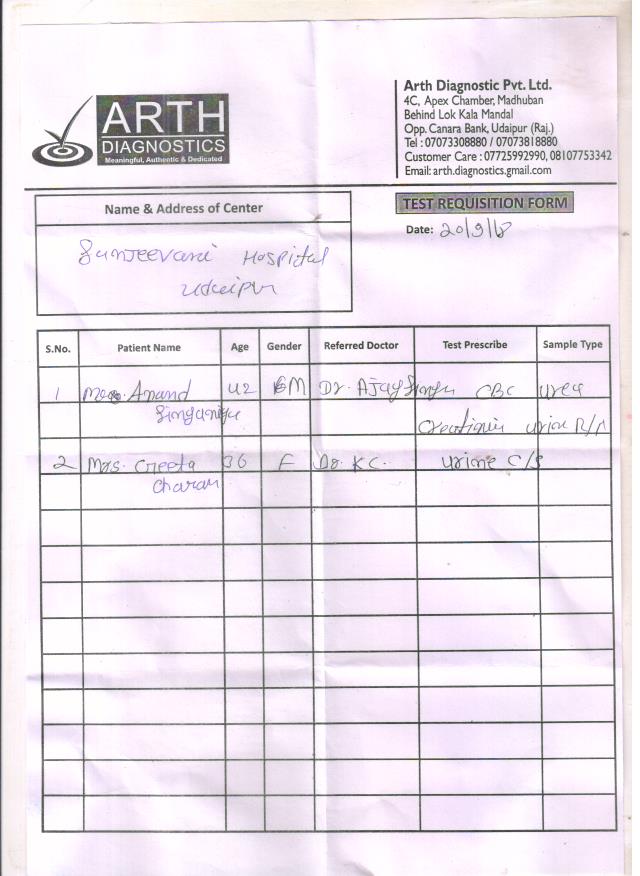 ARTH
DIAGNOSTICS
Meaningful, Authentic & Dedicated
Arth Diagnostic Pvt. Ltd.
4C, Apex Chamber, Madhuban
Behind Lok Kala Mandal
Opp. Canara Bank, Udaipur (Raj.)
Tel : 07073308880 / 07073818880
Customer Care : 07725992990, 08107753342
Email: arth.diagnostics.gmail.com
Name & Address of Center
Sunjeevani Hospital
Udaipur
TEST REQUISITION FORM
Date: 20/9/18
S.No. Patient Name Age Gender Referred Doctor Test Prescribe Sample Type
1 Anand 42 M Dr. Ajay Singh CBC Urea
urine R/M
2 Mrs. Geeta 36 F Dr. KC. urine C/S
Charan